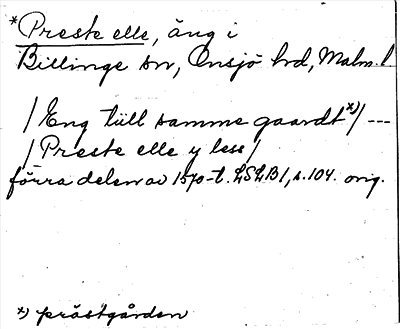 *Preste elle, äng i
Billinge sn, Onsjö hd, Malm. l.
/Eng tiill samme gaardt*)/ ---
/Preste elle y less/
förra delen av 1570-t. LSLB1, s. 104. orig.
*) prästgården